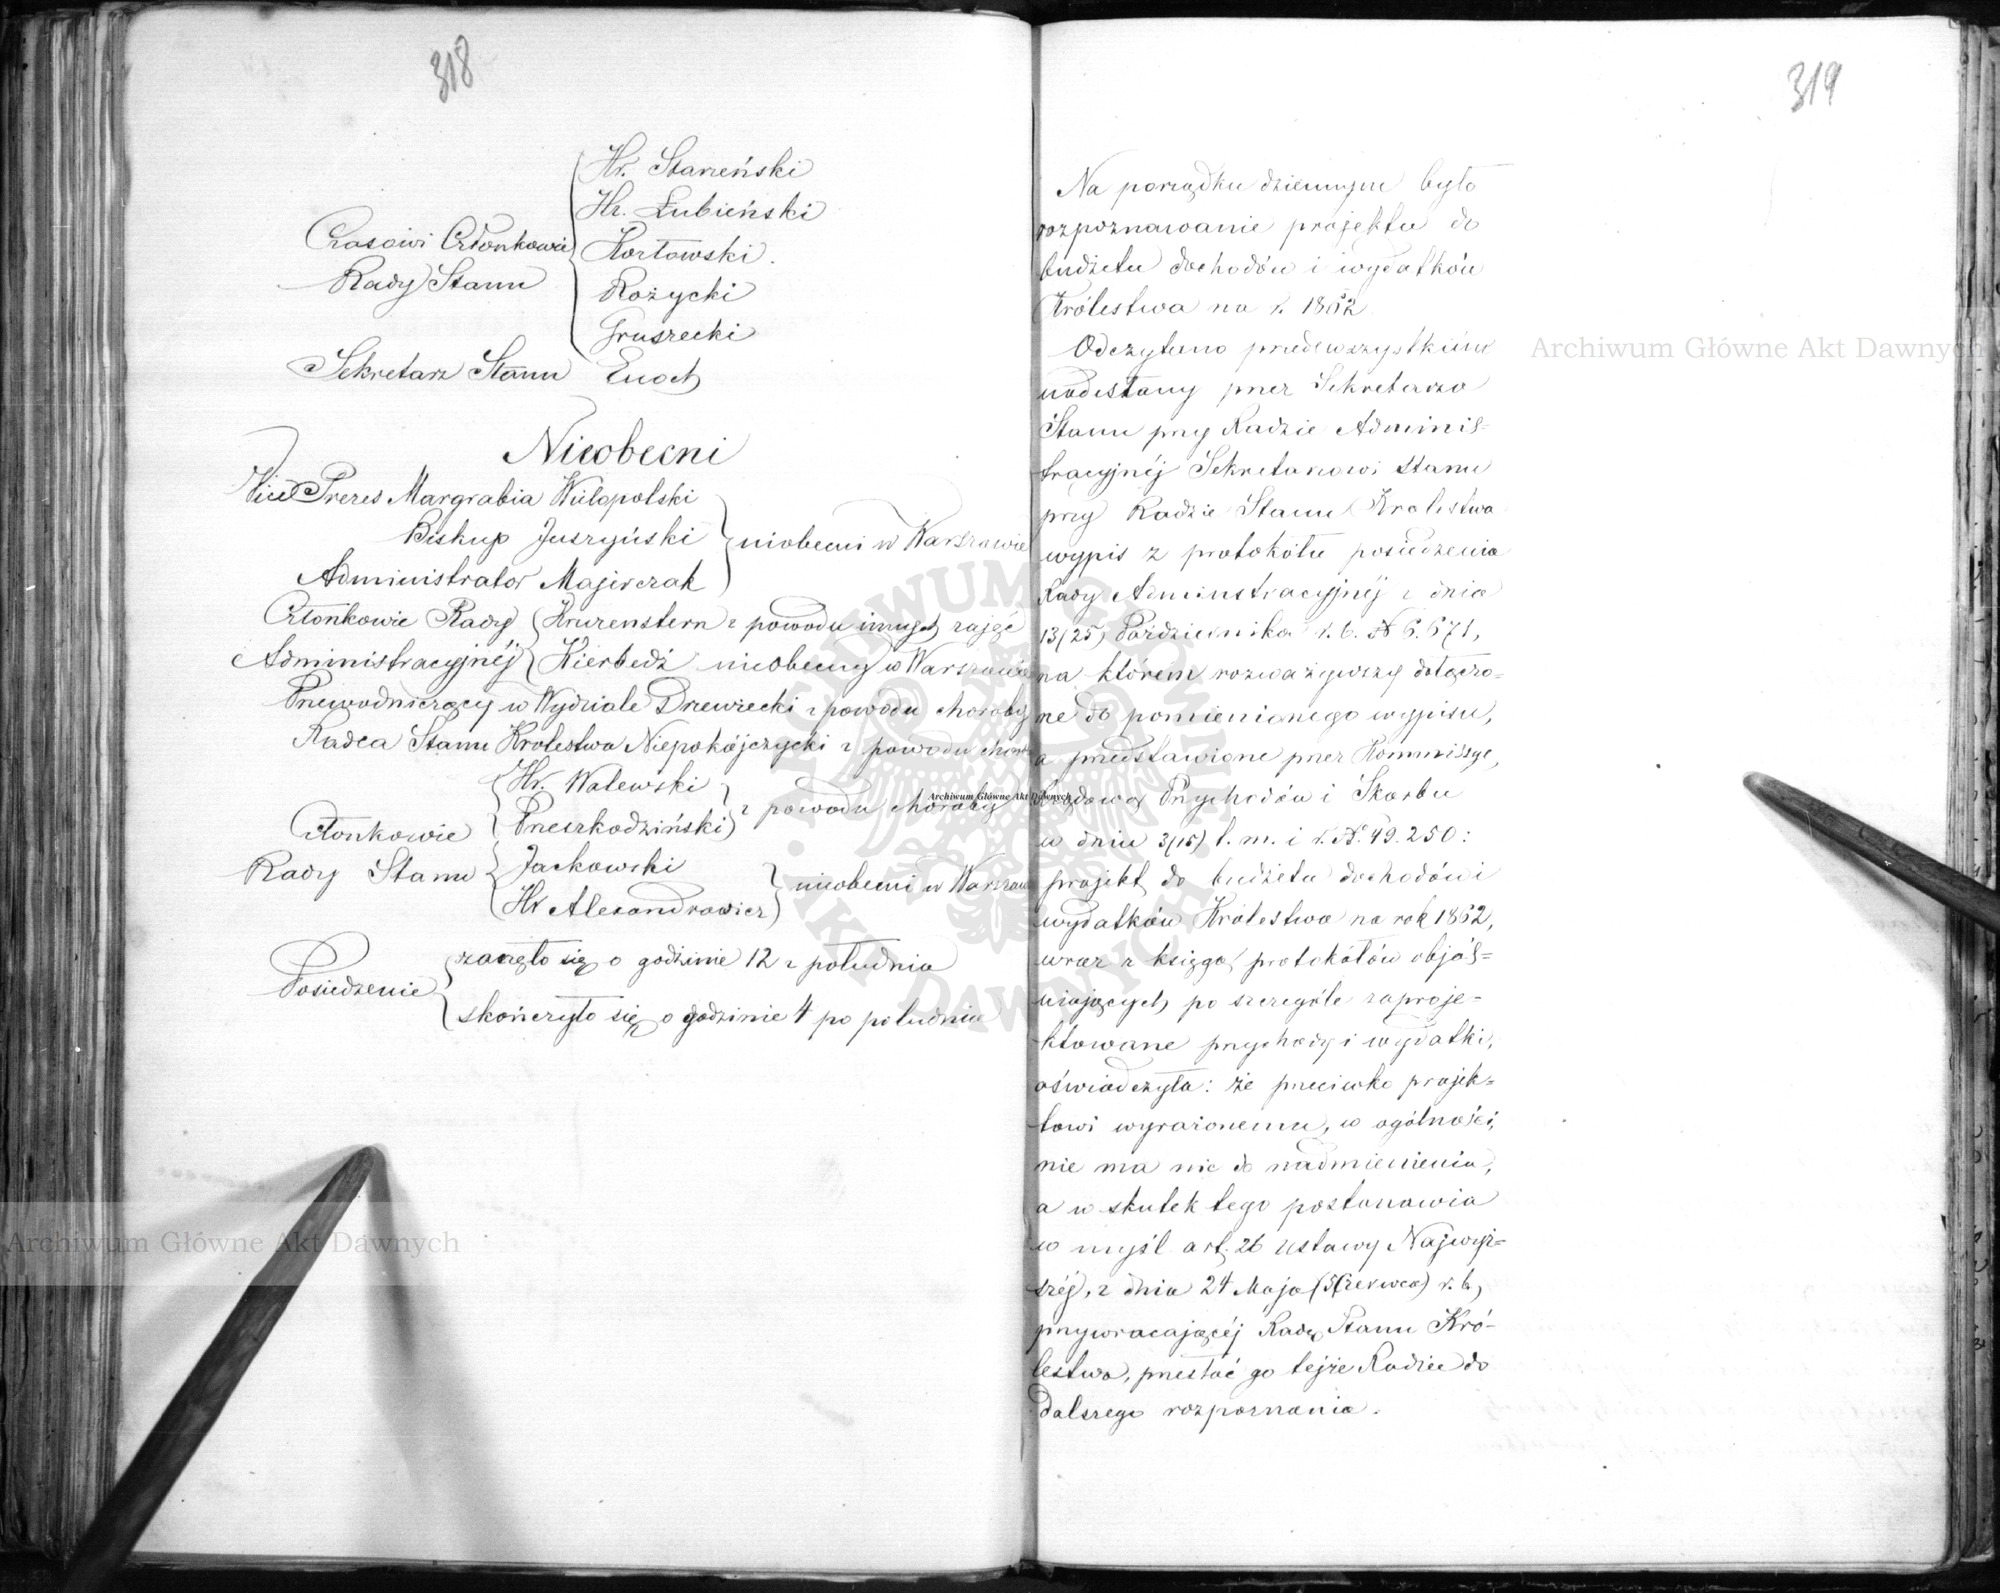 318
Czasowi Członkowie
Rady Stanu
Hr. Starzeński
Hr. Łubieński
Kozłowski.
Rożycki
Gruszecki
Sekretarz Stanu Enoch
Nieobecni
Vice Prezes Margrabia Wielopolski
Biskup Juszyński
Administrator Majerczak
nieobecni w Warszawie
Członkowie Rady
Administracyjnéj
Kruzenstern z powodu innych zajęć
Kierbedź nieobecny w Warszawie
Przewodniczący w Wydziale Drzewiecki z powodu choroby
Radca Stanu Królestwa Niepokójczycki z powodu
Członkowie
Rady Stanu
Hr. Walewski
Przeszkodziński
z powodu choroby
Jackowski
Hr Alexandrowicz
nieobecni w
Posiedzenie
zaczęło się o godzinie 12 z południa
skończyło się o godzinie 4 po południu
319
Na porządku dziennym było
rozpoznawanie projektu do
budżetu dochodów i wydatków
Królestwa na r. 1862
Odczytano przedewszystkiem
nadesłany przez Sekretarza
Stanu przy Radzie Adminis=
tracyjnéj Sekretarzowi Stanu
przy Radzie Stanu Królestwa
wypis z protokółu posiedzenia
Rady Administracyjnéj z dnia
13/25) Października r. b. № 6.671,
na którem rozważywszy dołączo=
ne do pomienionego wypisu,
a przedstawione przez Kommissyę
Rządową Przychodów i Skarbu
w dniu 3/15) t. m. i r. №. 49.250:
projekt do budżetu dochodów i
wydatków Królestwa na rok 1862,
wraz z księgą protokółów objaś=
niających po szczególe zaproje=
ktowane przychody i wydatki,
oświadczyła: że przeciwko projek=
towi wyrażonemu, w ogólności,
nie ma nic do nadmienienia,
a w skutek tego postanawia
w myśl art. 26 ustawy Najwyż=
széj, z dnia 24 Maja (5 Czerwca) r. b,
przywracającéj Radę Stanu Kró-
lestwa, przesłać go tejże Radzie do
dalszego rozpoznania.
Archiwum Główne Akt Dawnych
Archiwum Główne Akt Dawnych
Archiwum Główne Akt Dawnych
ARCHIWUM GŁÓWNE · AKT DAWNYCH ·